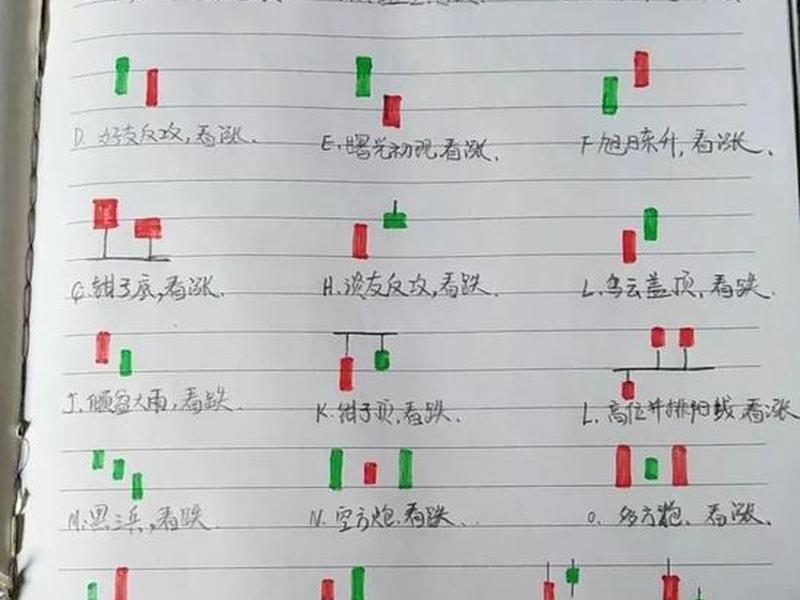 D. 好友反攻,看涨.
E. 曙光初现,看涨.
F 旭日东升, 看涨.
G. 钳子底,看涨.
H. 淡友反攻,看跌.
L. 乌云盖顶, 看跌.
J. 倾盆大雨,看跌.
K. 钳子顶,看跌.
L. 高位并排阳线,看涨
M. 黑三兵,看跌.
N. 空方炮.看跌.
O. 多方炮. 看涨.